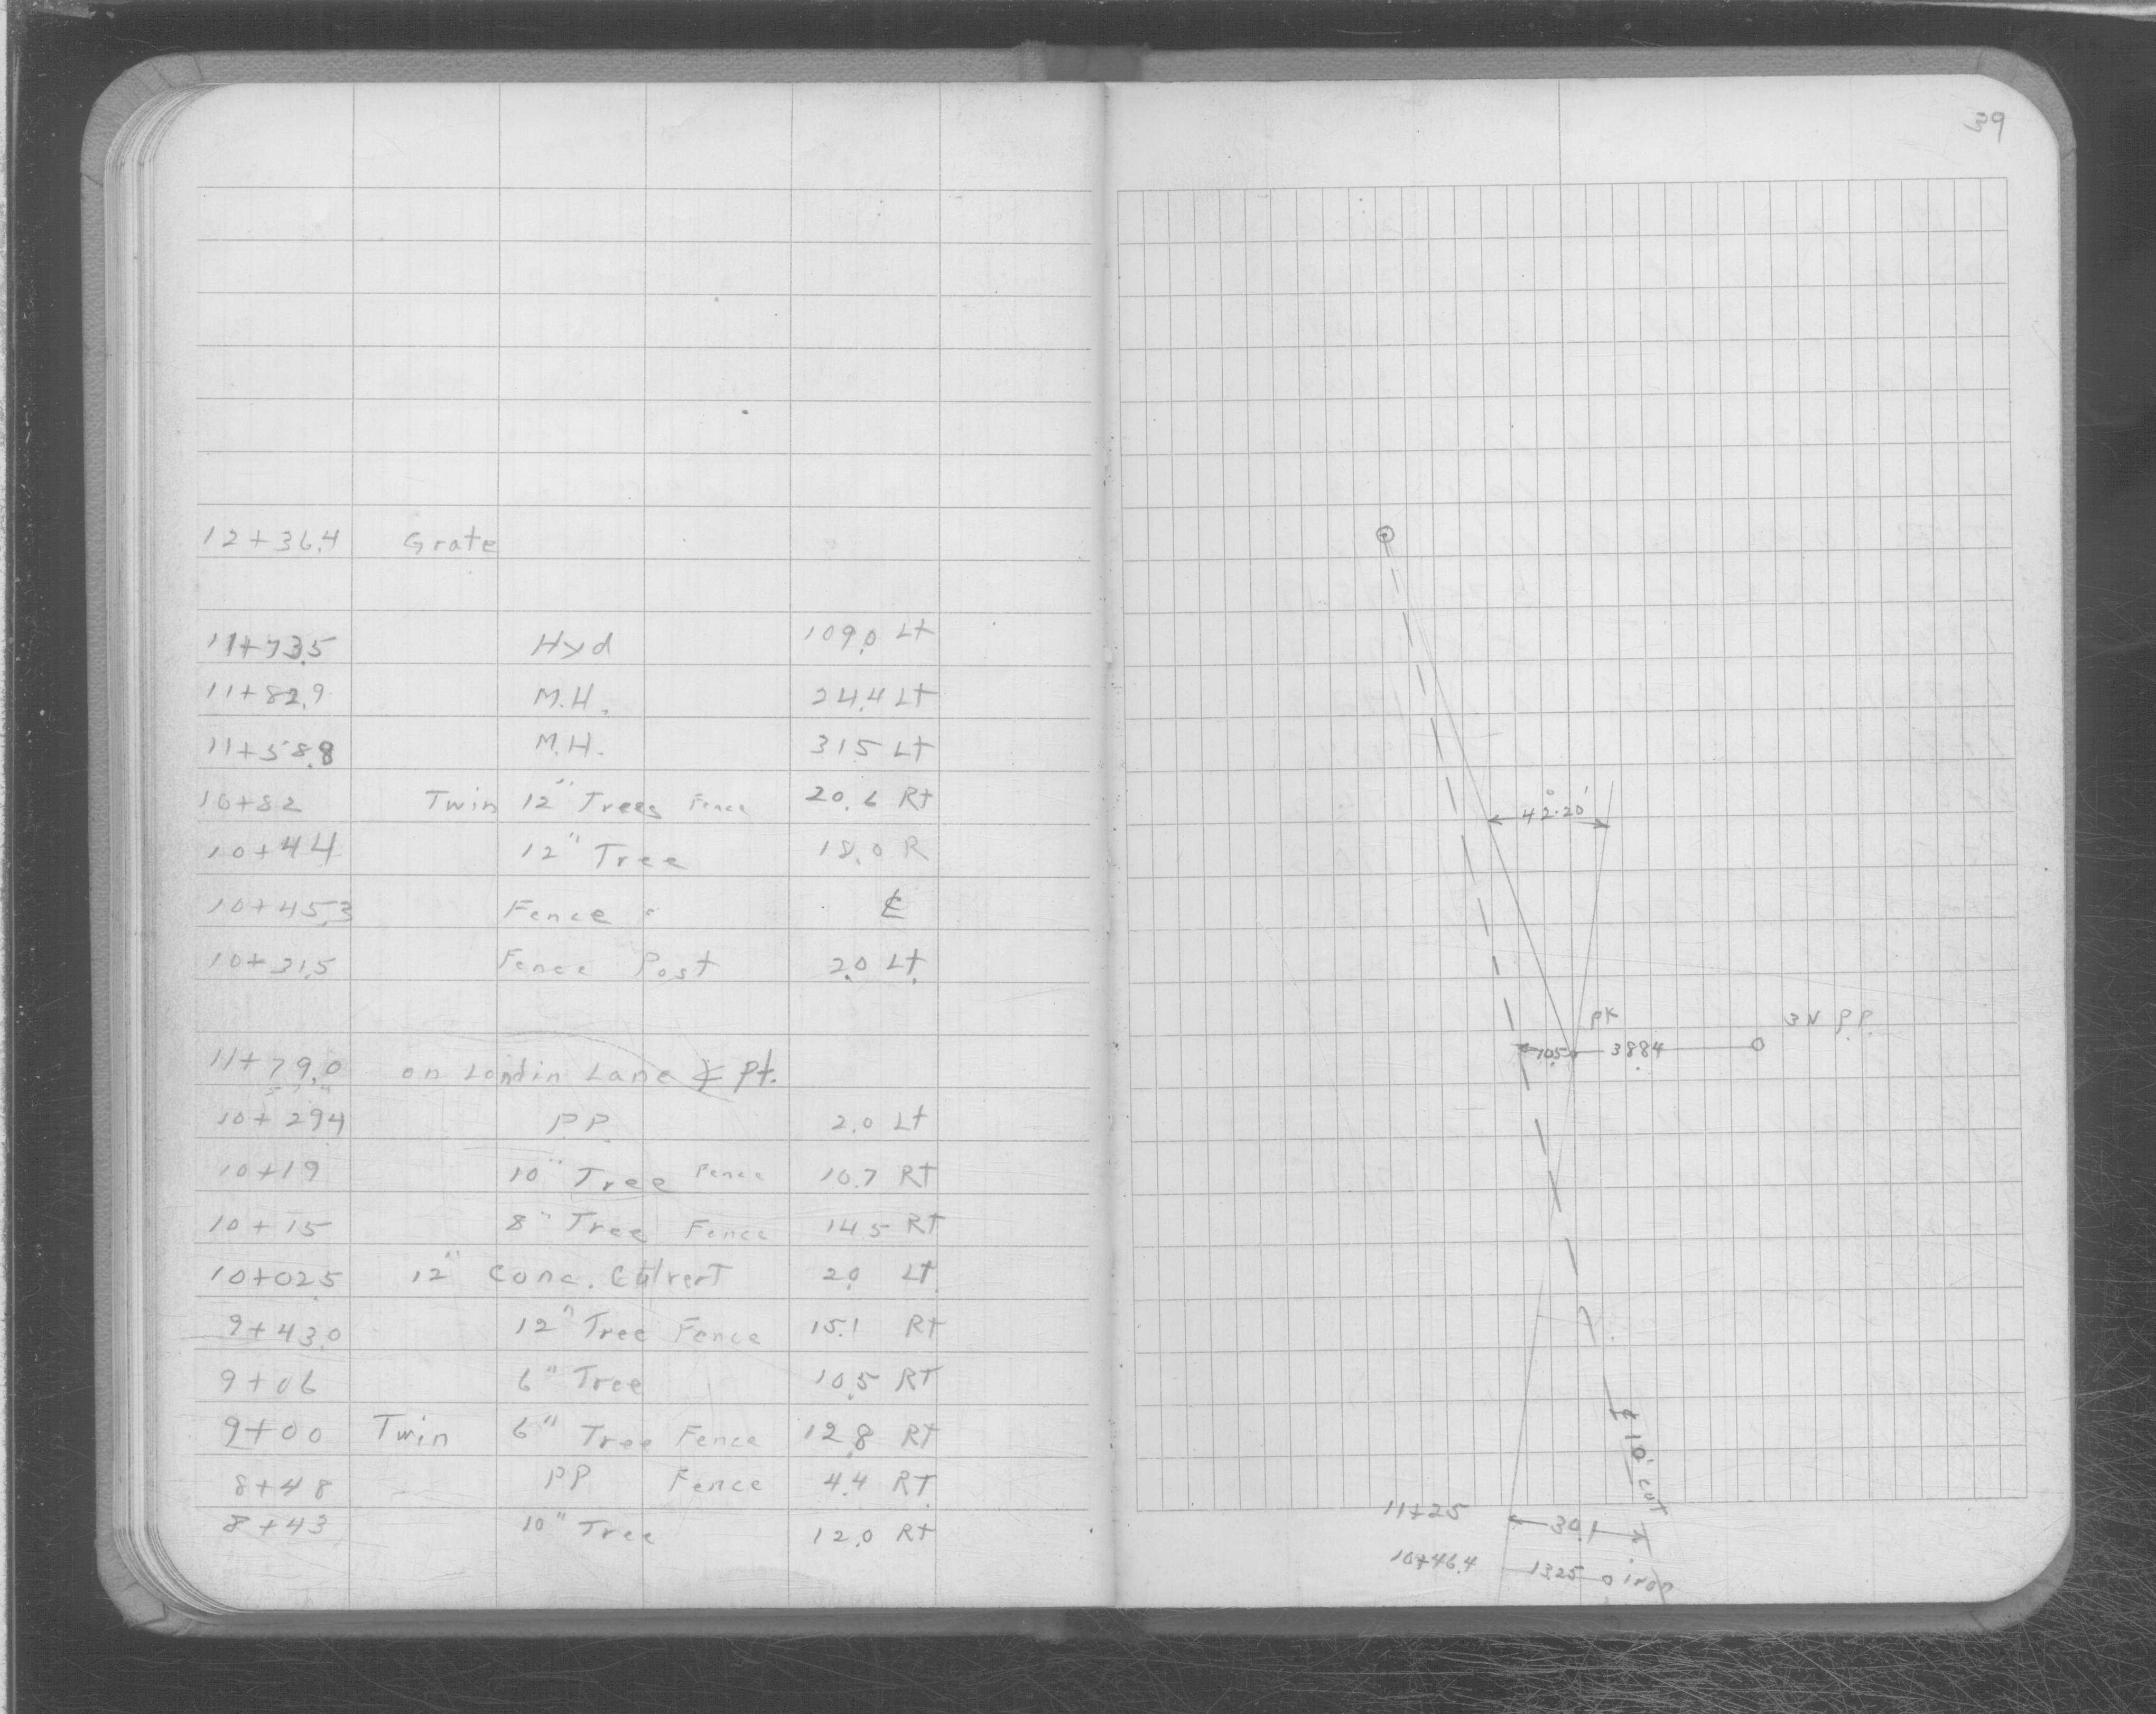 39
12+36.4 Grate
11+73.5 Hyd 109.0 Lt
11+82.9 M.H. 24.4 Lt
11+58.8 M.H. 31.5 Lt
10+82 Twin 12" Trees Fence 20.6 Rt
10+44 12" Tree 18.0 R
10+45.3 Fence ℄
10+31.5 Fence Post 2.0 Lt.
11+79.0 on Londin Lane ∡ pt.
10+29.4 PP 2.0 Lt
10+19 10" Tree Fence 10.7 Rt
10+15 8" Tree Fence 14.5 Rt
10+02.5 12" Conc. Culvert 2.0 Lt
9+43.0 12" Tree Fence 15.1 Rt
9+06 6" Tree 10.5 RT
9+00 Twin 6" Tree Fence 12.8 RT
8+48 PP Fence 4.4 RT
8+43 10" Tree 12.0 Rt
42°20'
PK 3N P.P.
10.5 38.84
10' cut
11+25 30.1
10+46.4 13.25 iron